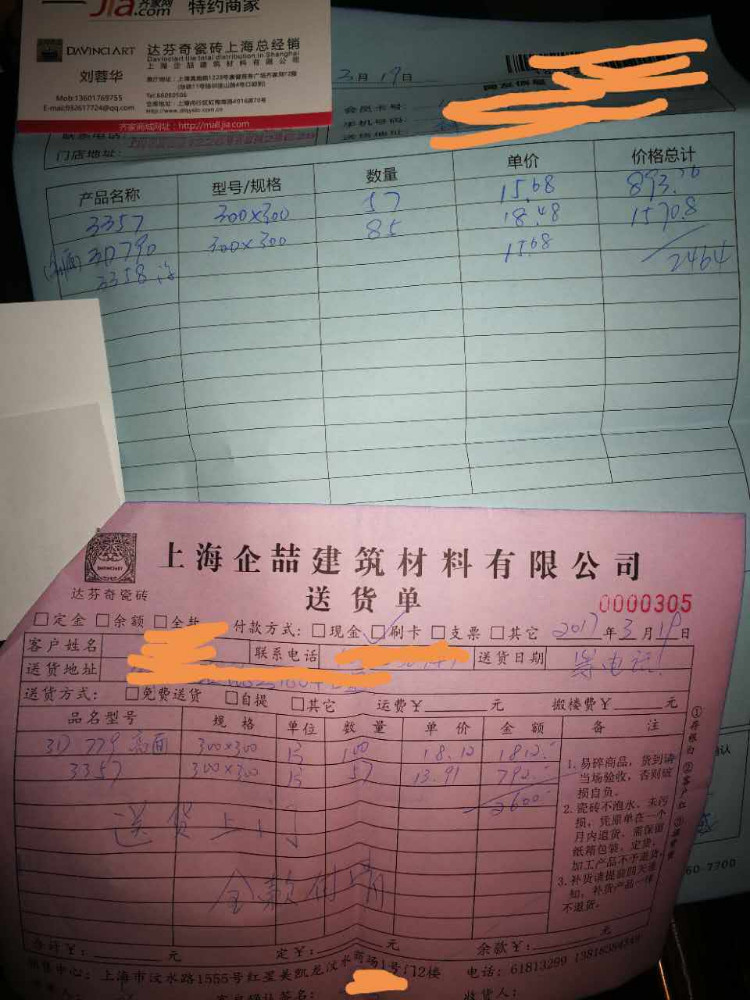 Jia.com 齐家网 特约商家
DAVINCI ART 达芬奇瓷砖上海总经销
上海企喆建筑材料有限公司
刘蓉华
Mob:13601769755
齐家商城网址:http://mall.jia.com
3月19日
会员卡号:
手机号码:
送货地址
联系电话
门店地址:
产品名称 型号/规格 数量 单价 价格总计
3357 300×300 57 15.68 893.76
3D790 300×300 85 18.48 1570.8
3358 15.68
2464
上海企喆建筑材料有限公司
达芬奇瓷砖
送货单
0000305
□定金 □余额 □全款 付款方式: □现金 □刷卡 □支票 □其它 2017年3月19日
客户姓名 联系电话 送货日期 等电话!
送货地址
送货方式: □免费送货 □自提 □其它 运费¥ 元 搬楼费¥ 元
品名型号 规格 单位 数量 单价 金额 备注
3D779亮面 300×300 片 100 18.12 1812
3357 300×300 片 57 13.91 792
2600
送货上门
全款付清
1.易碎商品,货到请当场验收,否则破损自负。
2.瓷砖不泡水、未污损,凭原单在一个月内退货,需保留纸箱包装,定货、加工产品不予退货。
3.补货请提前四天通知,补货产品一律不退货。
合计¥: 元 定¥: 元 余款¥: 元
销售中心:上海市汶水路1555号红星美凯龙汶水商场1号门2楼 电话:61813299
客户确认签名: 收货人: